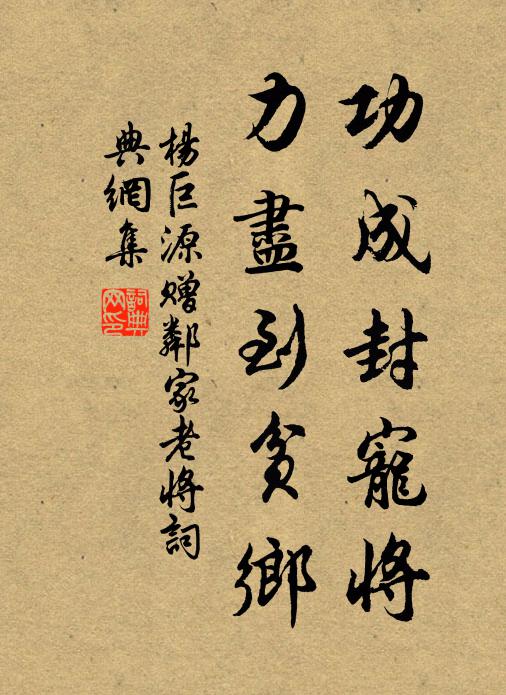 功成封寵將
力盡到貧鄉
楊巨源贈鄰家老將詞
典網集
詞典
网印